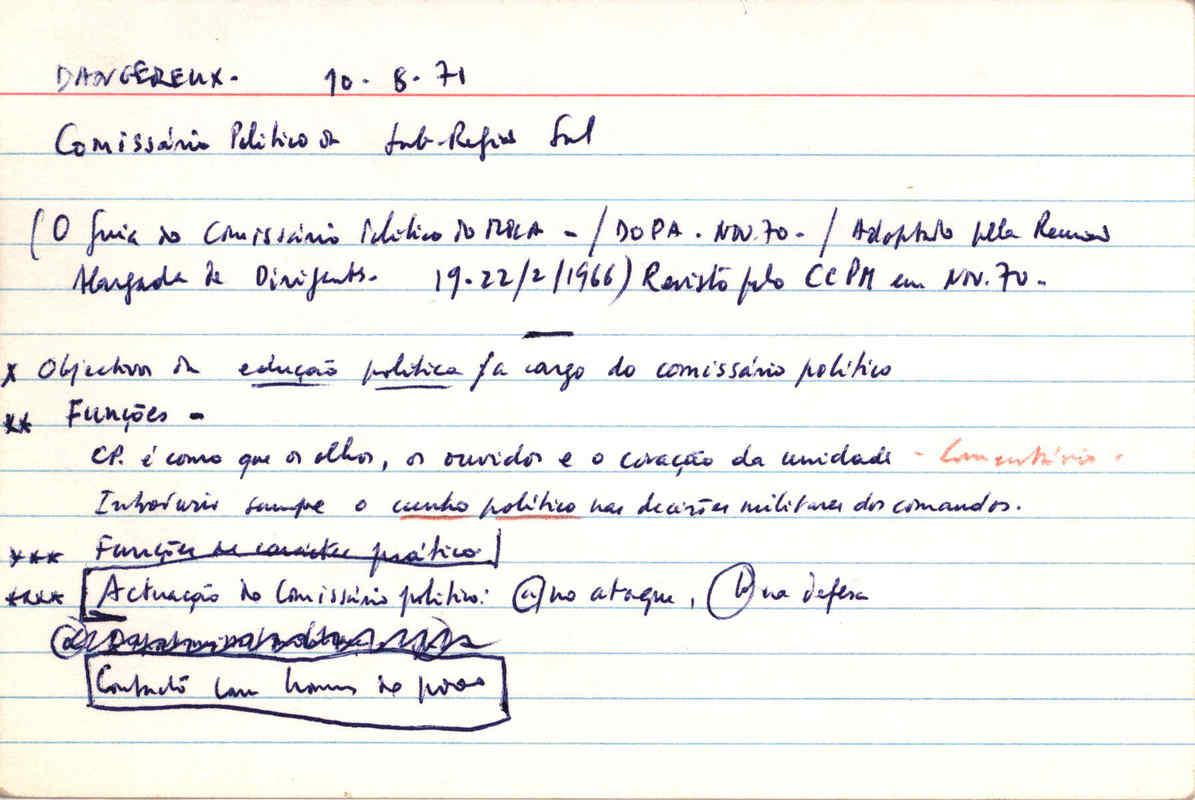 DANGEREUX. 10.8.71
Comissário Político da Sub-Região Sul
(O Guia do Comissário Político do MPLA - / DOPA. NOV. 70 - / Adoptado pela Reunião
Alargada de Dirigentes. 19-22/2/1966) Revisto pelo CCPM em NOV. 70 -
* Objectivos da educação política /a cargo do comissário político
** Funções -
CP. é como que os olhos, os ouvidos e o coração da unidade - Comentário.
Introduzir sempre o cunho político nas decisões militares dos comandos.
*** Funções de carácter prático
**** Actuação do Comissário político: a) no ataque, b) na defesa
Contacto com homens do povo